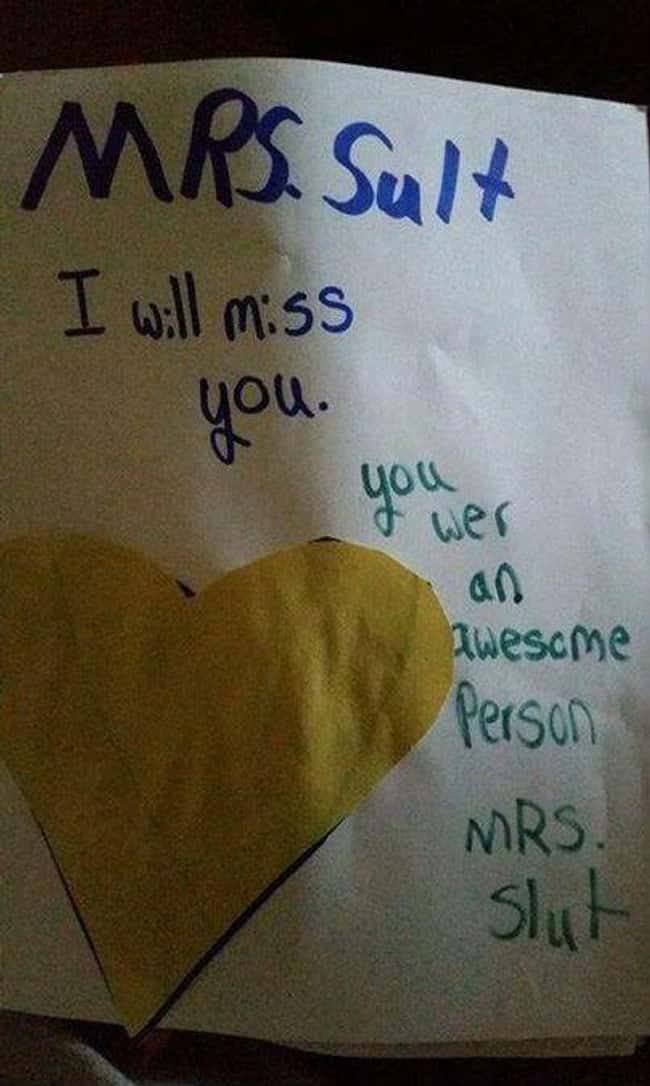 MRS. Sult
I will miss
you.
you
wer
an
awesome
Person
MRS.
Slut